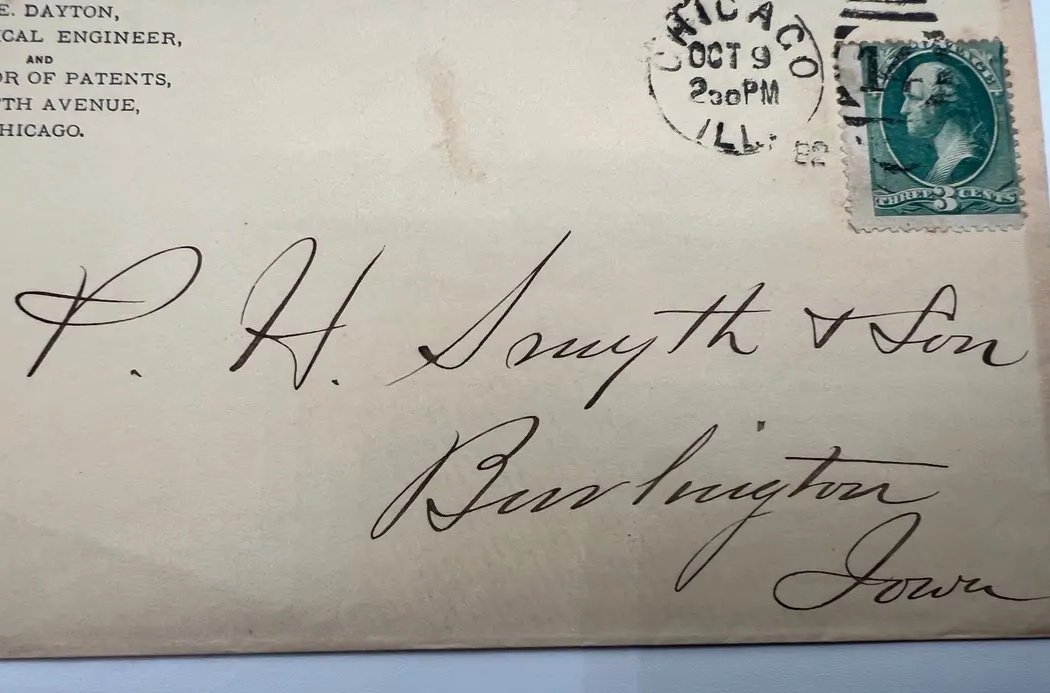 E. DAYTON,
ICAL ENGINEER,
AND
OR OF PATENTS,
TH AVENUE,
HICAGO.
CHICAGO
OCT 9
230PM
ILL.
82
1
THREE 3 CENTS
P. H. Smyth & Son
Burlington
Iowa